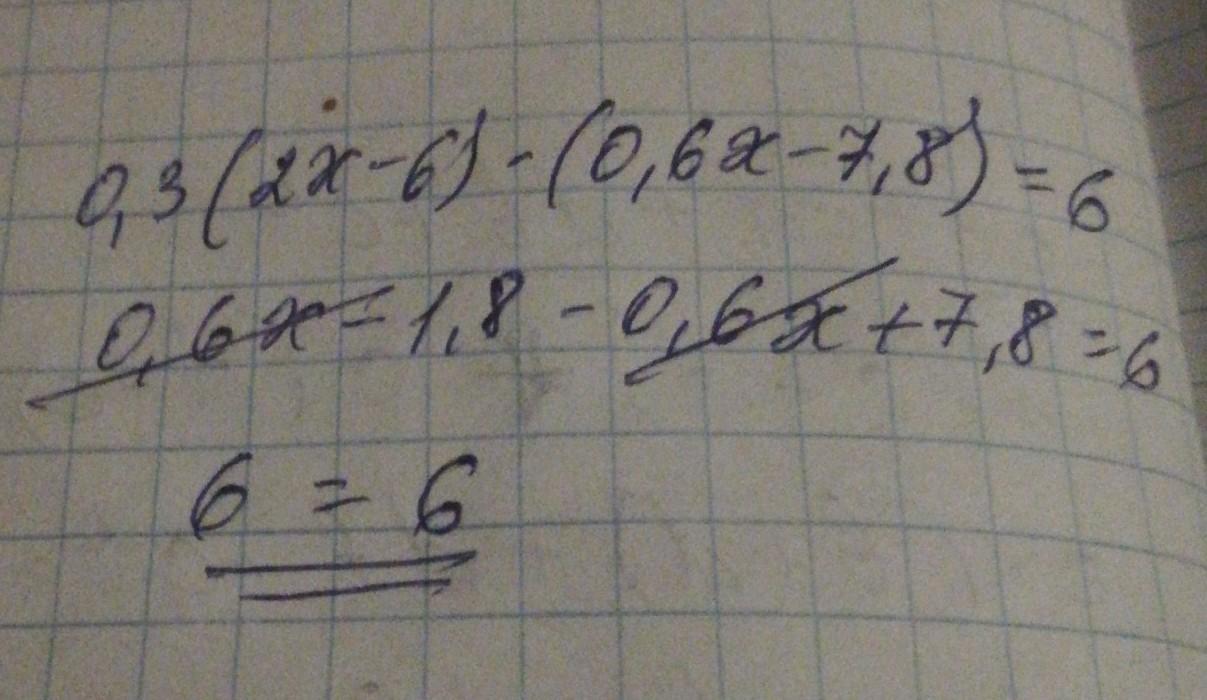 0,3(2x-6)-(0,6x-7,8)=6
0,6x-1,8-0,6x+7,8=6
6=6